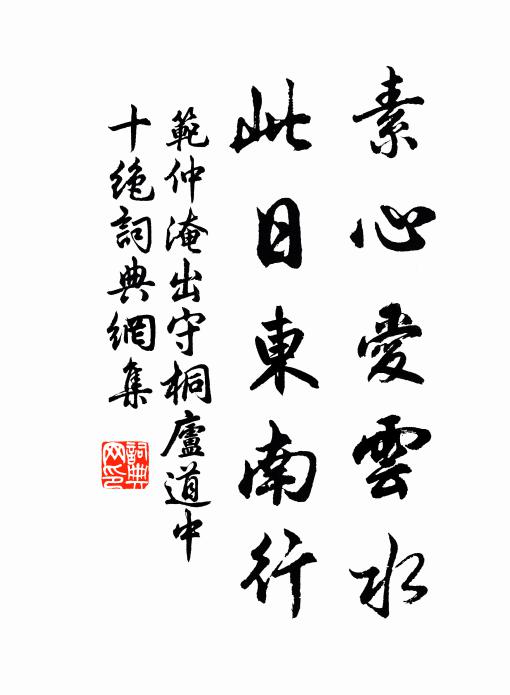 素心愛雲水
此日東南行
範仲淹出守桐廬道中
十絶詞典網集
詞典網印